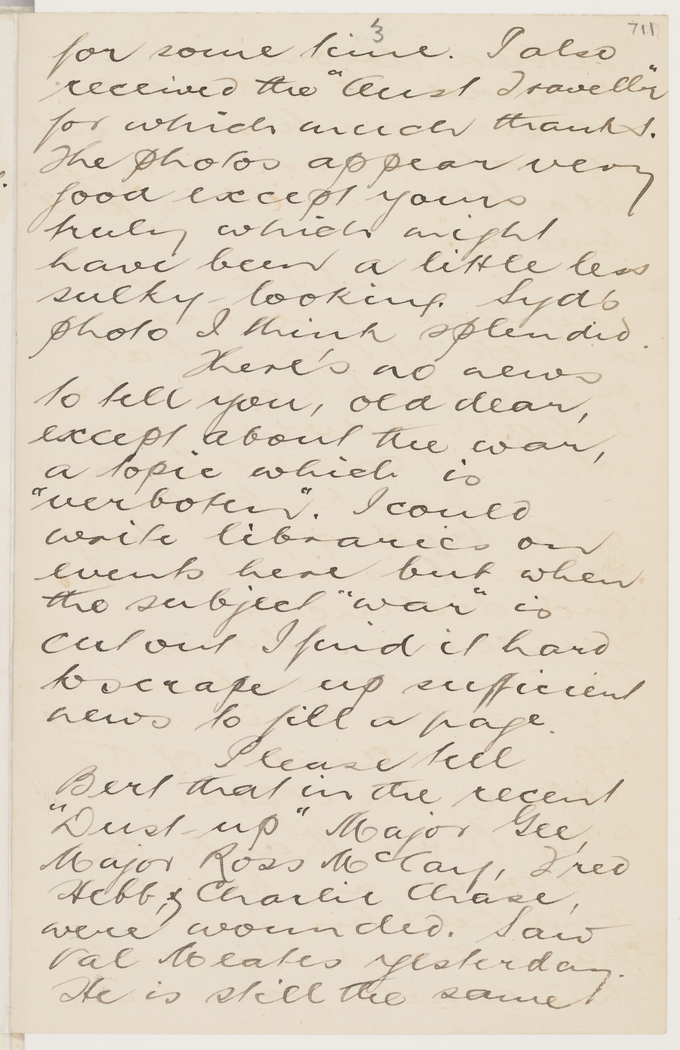 3
711
for some time. I also
received the "Aust Traveller"
for which much thanks.
The photos appear very
good except yours
truly which might
have been a little less
sulky-looking. Syd's
photo I think splendid.
There's no news
to tell you, old dear,
except about the war,
a topic which is
"verboten". I could
write libraries on
events here but when
the subject "war" is
cut out I find it hard
to scrape up sufficient
news to fill a page.
Please tell
Bert that in the recent
"Dust-up" Major Gee,
Major Ross McCay, Fred
Hebb, & Charlie Chase,
were wounded. Saw
Val Meates yesterday.
He is still the same